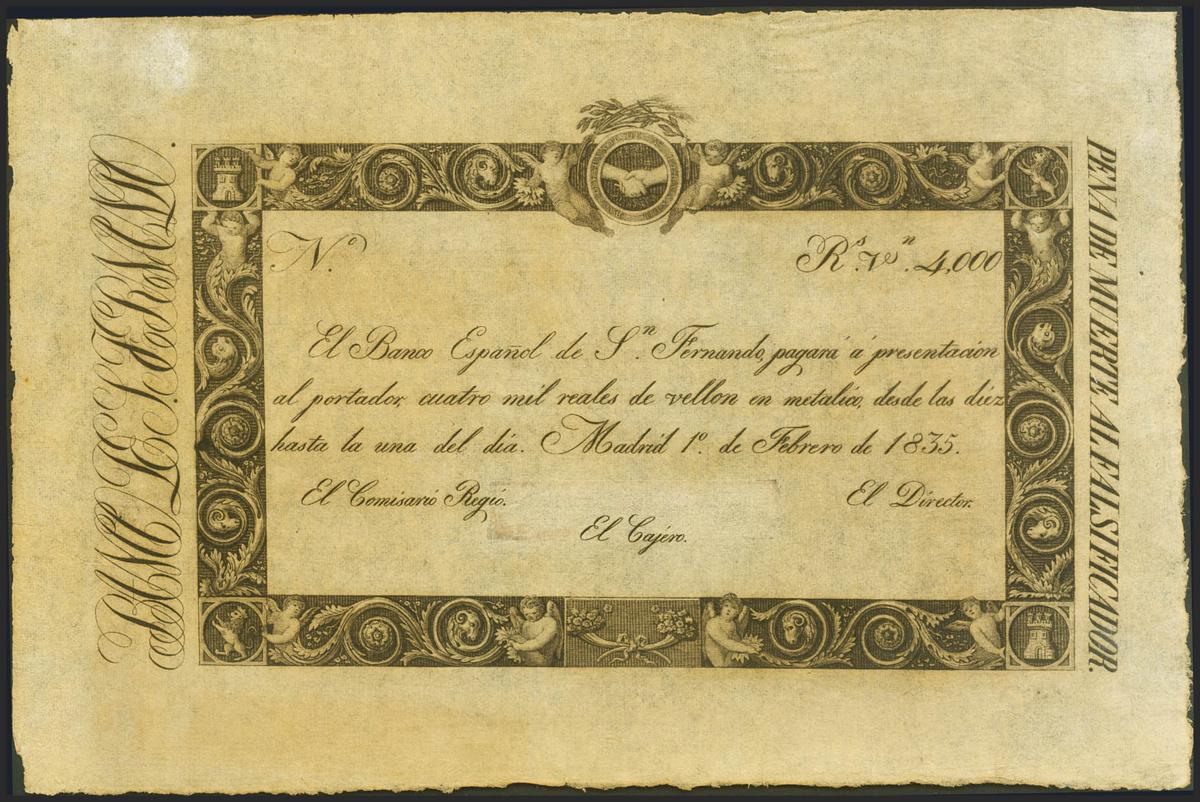 N.º
R.ˢ Vⁿ. 4,000
El Banco Español de S.ⁿ Fernando, pagará á presentacion
al portador, cuatro mil reales de vellon en metalico, desde las diez
hasta la una del dia. Madrid 1º. de Febrero de 1835.
El Comisario Regio.
El Director.
El Cajero.
PENA DE MUERTE AL FALSIFICADOR.